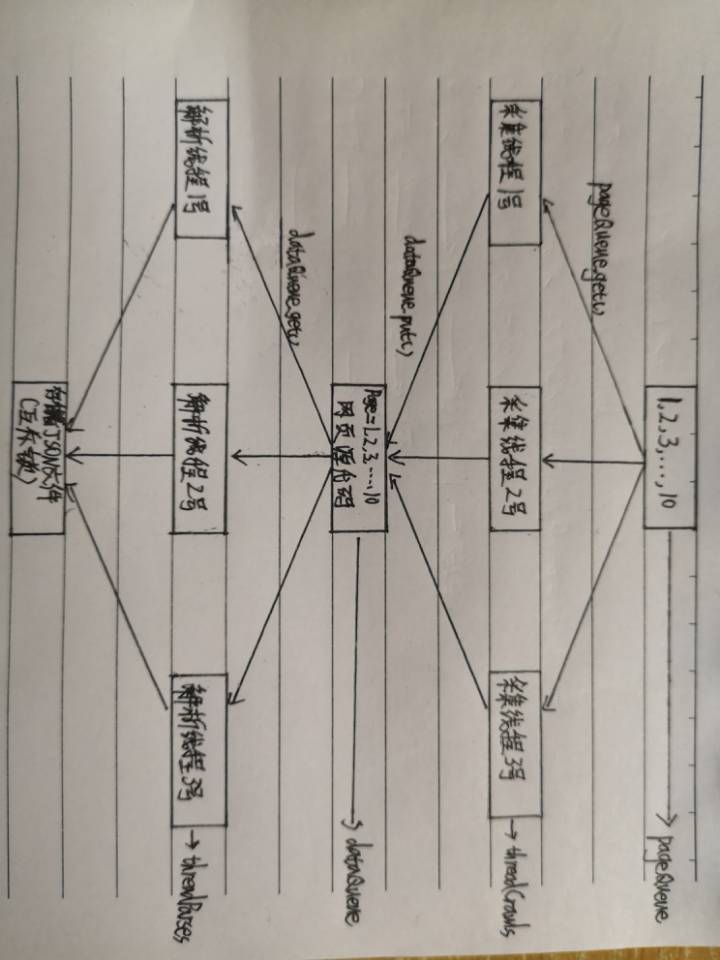 1,2,3,...,10
pageQueue
pageQueue.get()
采集线程1号
采集线程2号
采集线程3号
threadCrawls
dataQueue.put()
Page=1,2,3,...,10
网页源代码
dataQueue
dataQueue.get()
解析线程1号
解析线程2号
解析线程3号
threadParses
存储JSON文件
(互斥锁)